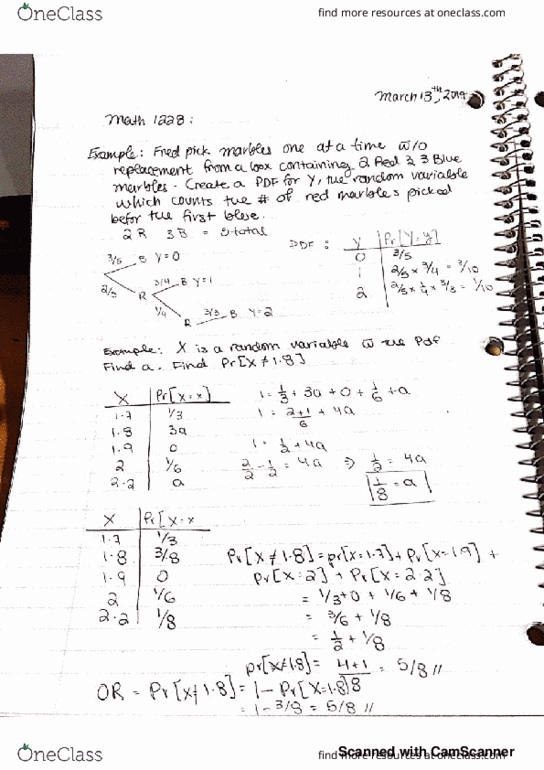 OneClass
find more resources at oneclass.com
March 13th, 2019
Math 1228:
Example: Fred pick marbles one at a time w/o
replacement from a box containing 2 Red & 3 Blue
marbles. Create a PDF for Y, the random variable
which counts the # of red marbles picked
befor the first blue.
2R 3B = 5 total
3/5 B Y=0
2/5 R 3/4 B Y=1
1/4 R 3/3 B Y=2
PDF : Y Pr[Y=y]
0 3/5
1 2/5 x 3/4 = 3/10
2 2/5 x 1/4 x 3/3 = 1/10
Example: X is a random variable w the Pdf
Find a. Find Pr[X≠1.8]
X Pr[X=x]
1.7 1/3
1.8 3a
1.9 0
2 1/6
2.2 a
1 = 1/3 + 3a + 0 + 1/6 + a
1 = 2+1/6 + 4a
1 = 1/2 + 4a
2/2 - 1/2 = 4a ⇒ 1/2 = 4a
1/8 = a
X Pr[X=x
1.7 1/3
1.8 3/8
1.9 0
2 1/6
2.2 1/8
Pr[X≠1.8] = pr[X=1.7] + Pr[X=1.9] +
Pr[X=2] + Pr[X=2.2]
= 1/3 + 0 + 1/6 + 1/8
= 3/6 + 1/8
= 1/2 + 1/8
pr[X≠1.8] = 4+1/8 = 5/8 //
OR = Pr[X≠1.8] = 1 - Pr[X=1.8]
= 1 - 3/8 = 5/8 //
OneClass
find more resources at oneclass.com
Scanned with CamScanner